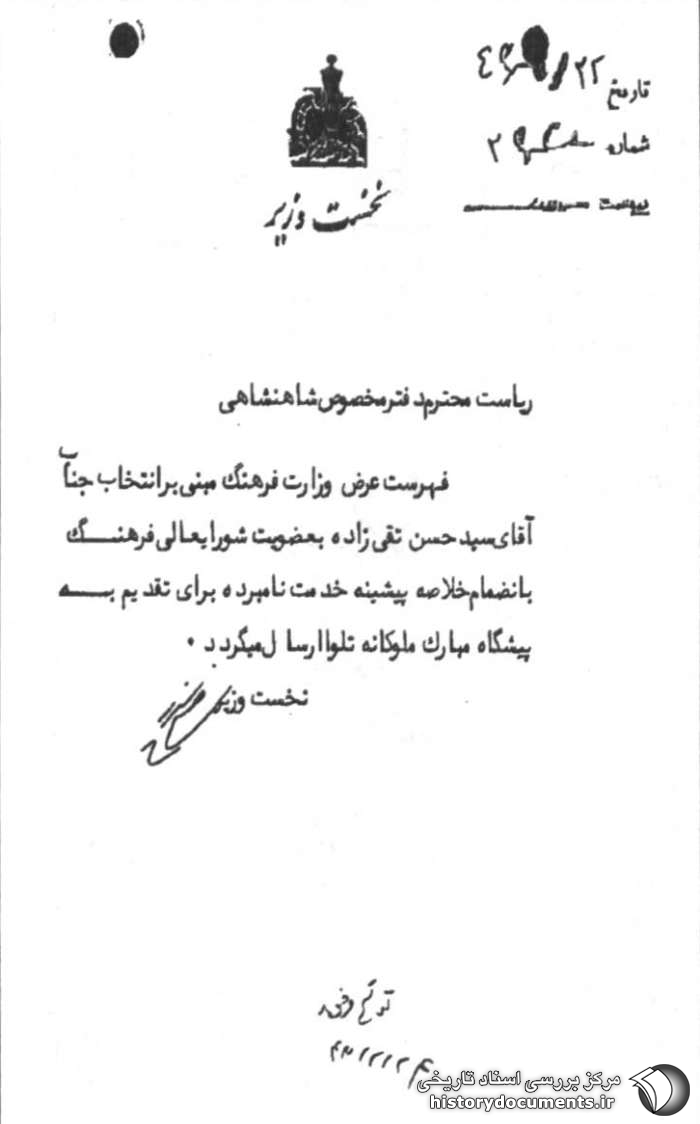 تاریخ
شماره
پیوست
نخست وزیر
ریاست محترم دفتر مخصوص شاهنشاهی
فهرست عرض وزارت فرهنگ مبنی بر انتخاب جناب
آقای سید حسن تقی زاده بعضویت شورایعالی فرهنگ
بانضمام خلاصه پیشینه خدمت نامبرده برای تقدیم به
پیشگاه مبارک ملوکانه تلوا ارسال میگردد ۰
نخست وزیر
مرکز بررسی اسناد تاریخی
historydocuments.ir